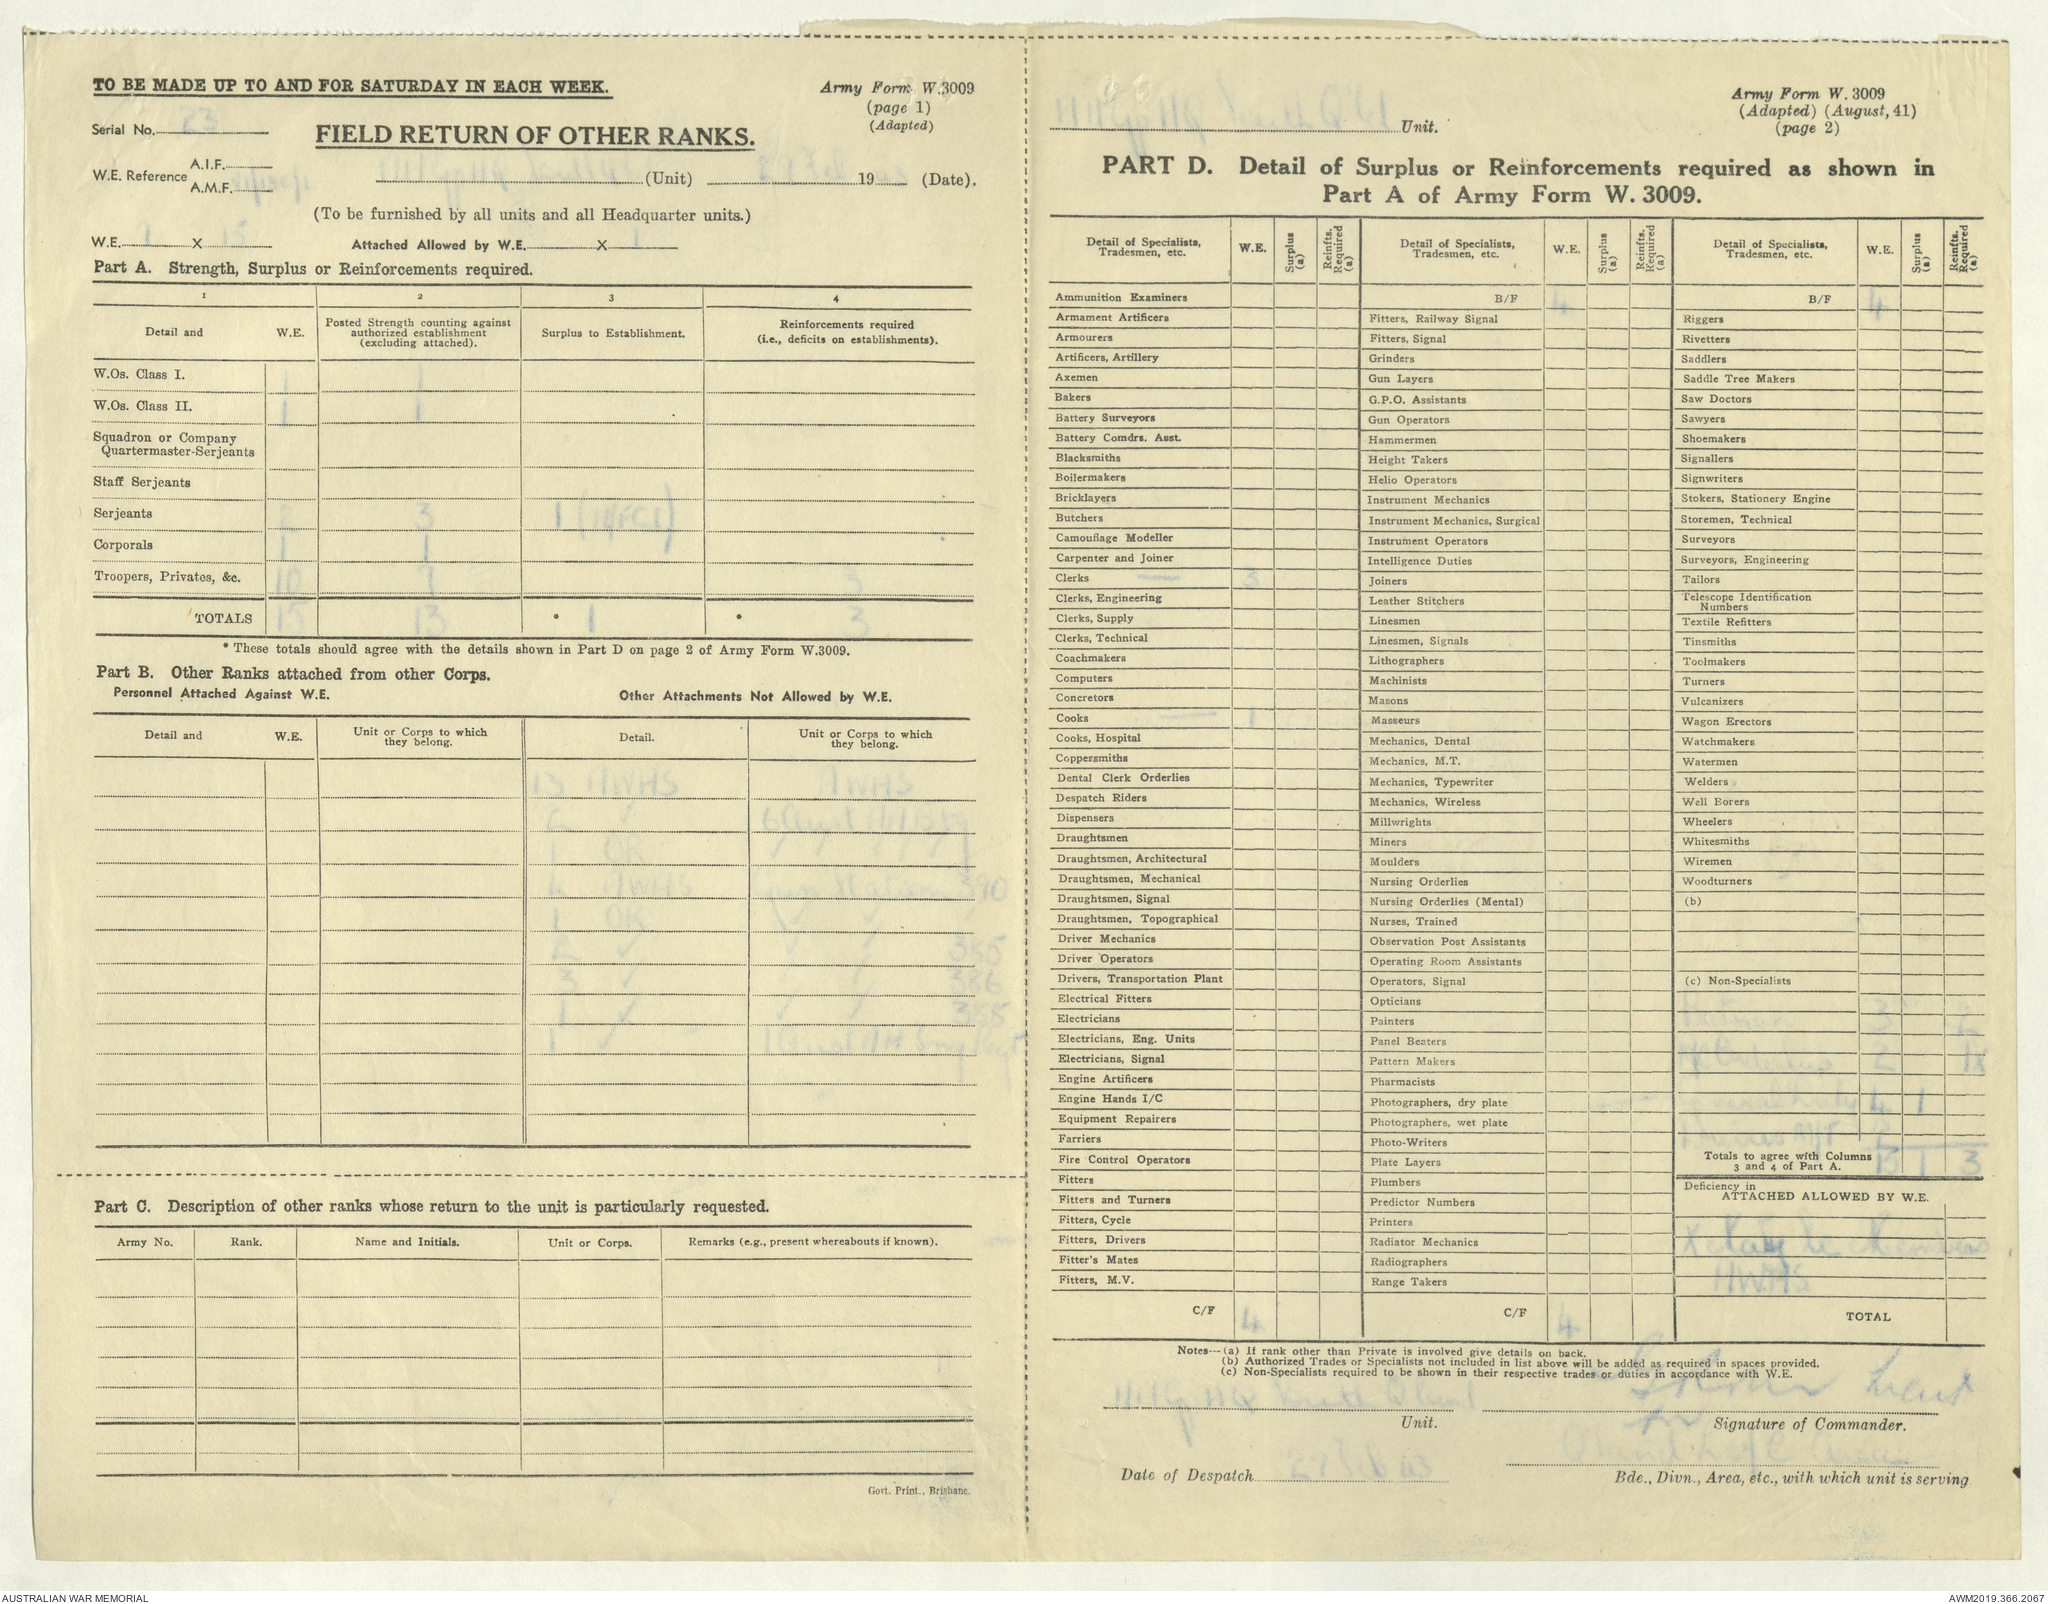 TO BE MADE UP TO AND FOR SATURDAY IN EACH WEEK.
Army Form W.3009
(page 1)
(Adapted)
Serial No. 23
FIELD RETURN OF OTHER RANKS.
W.E. Reference A.I.F.
A.M.F.
(Unit) 19 (Date).
(To be furnished by all units and all Headquarter units.)
W.E. X 15 Attached Allowed by W.E. X 1
Part A. Strength, Surplus or Reinforcements required.
1 2 3 4
Detail and W.E. Posted Strength counting against authorized establishment (excluding attached). Surplus to Establishment. Reinforcements required (i.e., deficits on establishments).
W.Os. Class I. 1 1
W.Os. Class II. 1 1
Squadron or Company
Quartermaster-Serjeants
Staff Serjeants
Serjeants 2 3 1
Corporals 1 1
Troopers, Privates, &c. 10 7 3
TOTALS 15 13 * 1 * 3
* These totals should agree with the details shown in Part D on page 2 of Army Form W.3009.
Part B. Other Ranks attached from other Corps.
Personnel Attached Against W.E. Other Attachments Not Allowed by W.E.
Detail and W.E. Unit or Corps to which they belong. Detail. Unit or Corps to which they belong.
13 AWAS AWAS
2 ✓
1 OR
4 AWAS 390
1 OR
2 ✓ 385
3 ✓ 386
1 ✓ 388
1 ✓
Part C. Description of other ranks whose return to the unit is particularly requested.
Army No. Rank. Name and Initials. Unit or Corps. Remarks (e.g., present whereabouts if known).
Govt. Print., Brisbane.
Unit.
Army Form W. 3009
(Adapted) (August, 41)
(page 2)
PART D. Detail of Surplus or Reinforcements required as shown in
Part A of Army Form W. 3009.
Detail of Specialists, Tradesmen, etc. W.E. Surplus (a) Reinfts. Required (a)
Ammunition Examiners
Armament Artificers
Armourers
Artificers, Artillery
Axemen
Bakers
Battery Surveyors
Battery Comdrs. Asst.
Blacksmiths
Boilermakers
Bricklayers
Butchers
Camouflage Modeller
Carpenter and Joiner
Clerks — 3
Clerks, Engineering
Clerks, Supply
Clerks, Technical
Coachmakers
Computers
Concretors
Cooks — 1
Cooks, Hospital
Coppersmiths
Dental Clerk Orderlies
Despatch Riders
Dispensers
Draughtsmen
Draughtsmen, Architectural
Draughtsmen, Mechanical
Draughtsmen, Signal
Draughtsmen, Topographical
Driver Mechanics
Driver Operators
Drivers, Transportation Plant
Electrical Fitters
Electricians
Electricians, Eng. Units
Electricians, Signal
Engine Artificers
Engine Hands I/C
Equipment Repairers
Farriers
Fire Control Operators
Fitters
Fitters and Turners
Fitters, Cycle
Fitters, Drivers
Fitter's Mates
Fitters, M.V.
C/F 4
Detail of Specialists, Tradesmen, etc. W.E. Surplus (a) Reinfts. Required (a)
B/F 4
Fitters, Railway Signal
Fitters, Signal
Grinders
Gun Layers
G.P.O. Assistants
Gun Operators
Hammermen
Height Takers
Helio Operators
Instrument Mechanics
Instrument Mechanics, Surgical
Instrument Operators
Intelligence Duties
Joiners
Leather Stitchers
Linesmen
Linesmen, Signals
Lithographers
Machinists
Masons
Masseurs
Mechanics, Dental
Mechanics, M.T.
Mechanics, Typewriter
Mechanics, Wireless
Millwrights
Miners
Moulders
Nursing Orderlies
Nursing Orderlies (Mental)
Nurses, Trained
Observation Post Assistants
Operating Room Assistants
Operators, Signal
Opticians
Painters
Panel Beaters
Pattern Makers
Pharmacists
Photographers, dry plate
Photographers, wet plate
Photo-Writers
Plate Layers
Plumbers
Predictor Numbers
Printers
Radiator Mechanics
Radiographers
Range Takers
C/F 4
Detail of Specialists, Tradesmen, etc. W.E. Surplus (a) Reinfts. Required (a)
B/F 4
Riggers
Rivetters
Saddlers
Saddle Tree Makers
Saw Doctors
Sawyers
Shoemakers
Signallers
Signwriters
Stokers, Stationery Engine
Storemen, Technical
Surveyors
Surveyors, Engineering
Tailors
Telescope Identification
Numbers
Textile Refitters
Tinsmiths
Toolmakers
Turners
Vulcanizers
Wagon Erectors
Watchmakers
Watermen
Welders
Well Borers
Wheelers
Whitesmiths
Wiremen
Woodturners
(b)
(c) Non-Specialists
Batmen 3 2
2 1x
4 1
Drivers M/T 2
Totals to agree with Columns
3 and 4 of Part A. 15 1 3
Deficiency in
ATTACHED ALLOWED BY W.E.
AWAS
TOTAL
Notes—(a) If rank other than Private is involved give details on back.
(b) Authorized Trades or Specialists not included in list above will be added as required in spaces provided.
(c) Non-Specialists required to be shown in their respective trades or duties in accordance with W.E.
Lieut
Unit. Signature of Commander.
Date of Despatch 27 Feb 43
Bde., Divn., Area, etc., with which unit is serving
AUSTRALIAN WAR MEMORIAL
AWM2019.366.2067